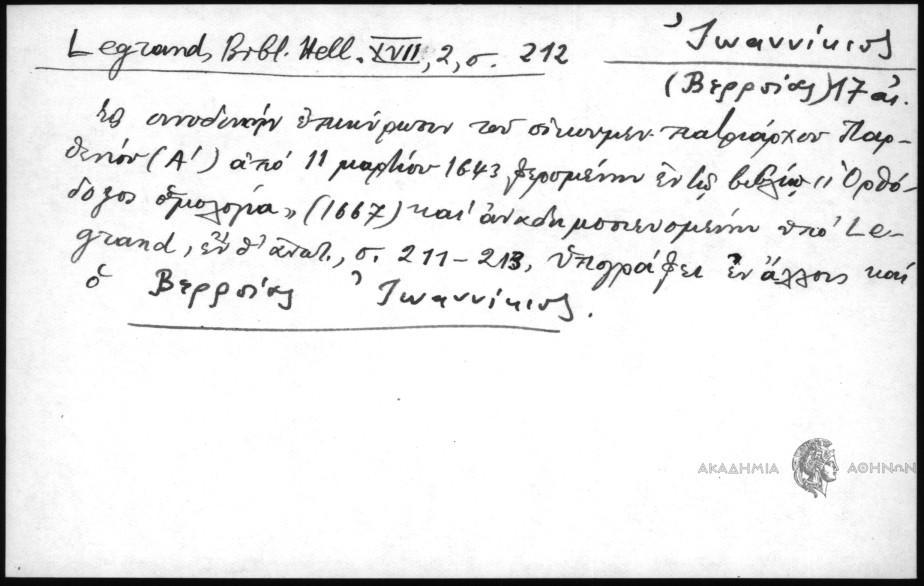 Legrand, Bibl. Hell. XVII, 2, σ. 212
Ἰωαννίκιος
(Βερροίας) 17 αἰ.
Εἰς συνοδικὴν ἐπικύρωσιν τοῦ οἰκουμεν. πατριάρχου Παρ-
θενίου (Α') ἀπὸ 11 μαρτίου 1643, φερομένην ἐν τῷ βιβλίῳ "Ὀρθό-
δοξος ὁμολογία" (1667) καὶ ἀναδημοσιευομένην ὑπὸ Le-
grand, ἔνθ' ἀνωτ., σ. 211-213, ὑπογράφει ἐν ἄλλοις καὶ
ὁ Βερροίας Ἰωαννίκιος.
ΑΚΑΔΗΜΙΑ ΑΘΗΝΩΝ